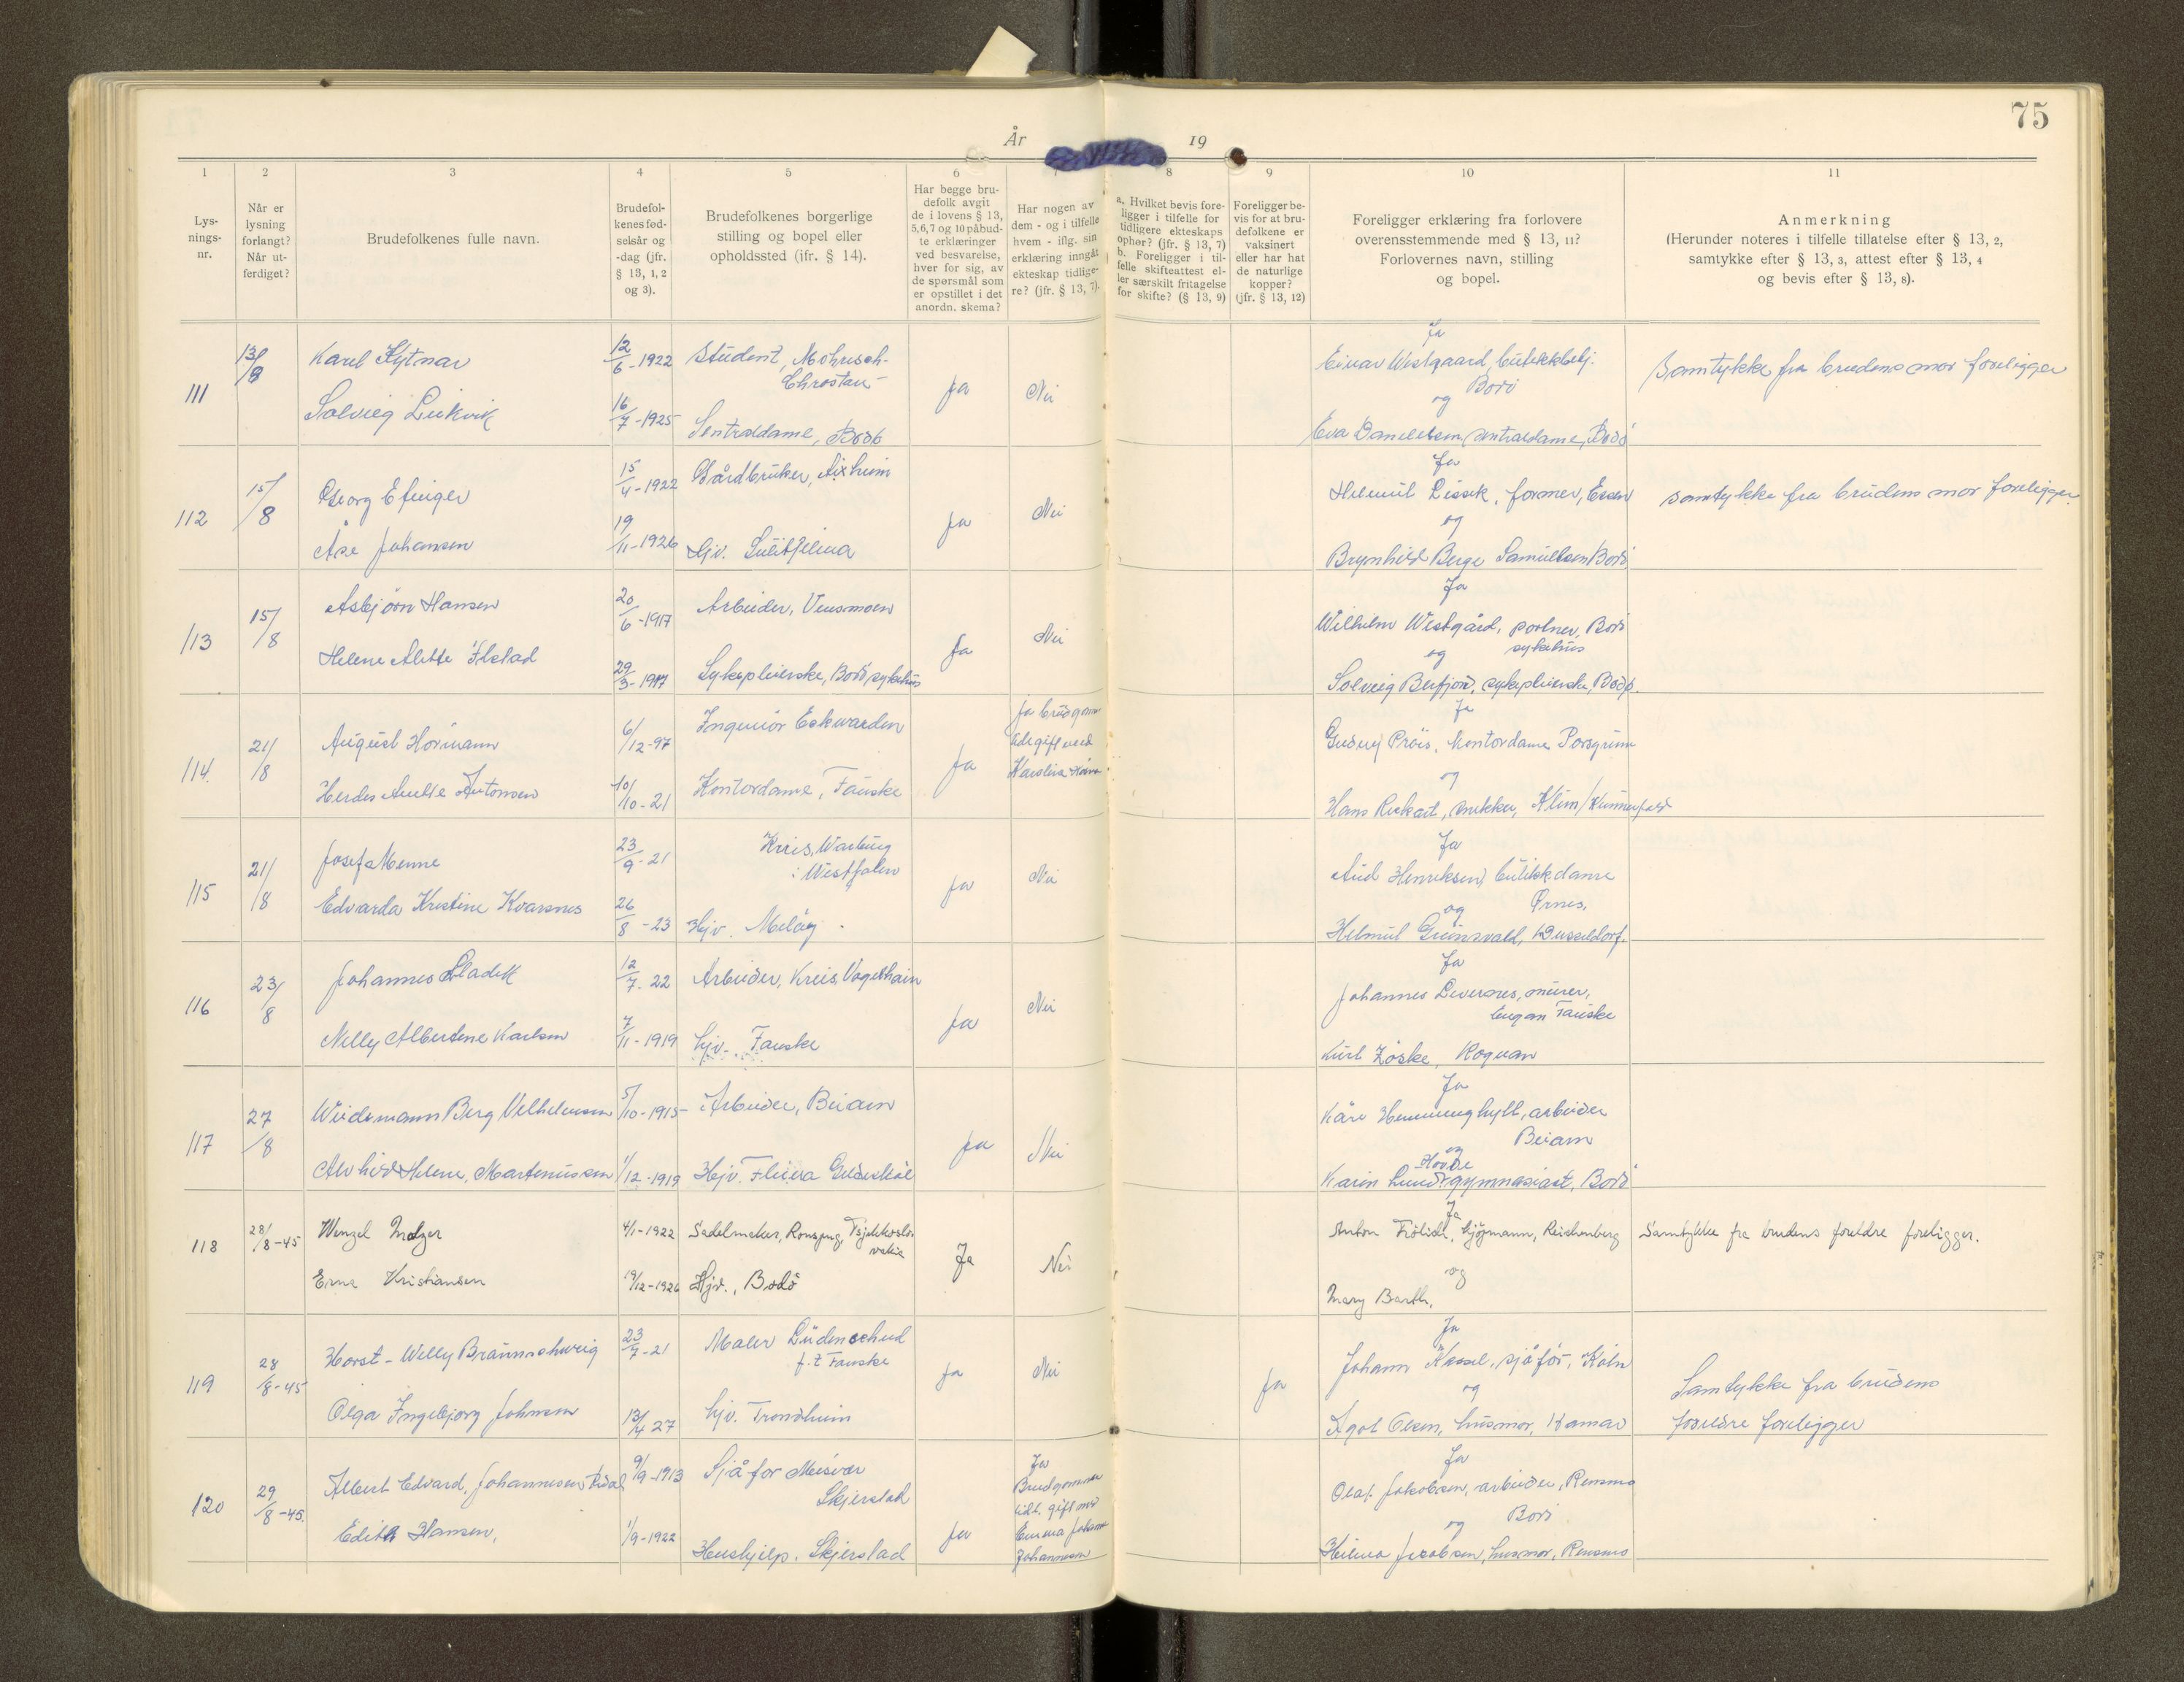 75
År 19
1 2 3 4 5 6 7 8 9 10 11
Lys-
nings-
nr.
Når er
lysning
forlangt?
Når ut-
ferdiget?
Brudefolkenes fulle navn.
Brudefol-
kenes fød-
selsår og
-dag (jfr.
§ 13, 1, 2
og 3).
Brudefolkenes borgerlige
stilling og bopel eller
opholdssted (jfr. § 14).
Har begge bru-
defolk avgit
de i lovens § 13,
5,6,7 og 10 påbud-
te erklæringer
ved besvarelse,
hver for sig, av
de spørsmål som
er opstillet i det
anordn. skema?
Har nogen av
dem - og i tilfelle
hvem - iflg. sin
erklæring inngåt
ekteskap tidlige-
re? (jfr. § 13, 7).
a. Hvilket bevis fore-
ligger i tilfelle for
tidligere ekteskaps
ophør? (jfr. § 13, 7)
b. Foreligger i til-
felle skifteattest el-
ler særskilt fritagelse
for skifte? (§ 13, 9)
Foreligger be-
vis for at bru-
defolkene er
vaksinert
eller har hat
de naturlige
kopper?
(jfr. § 13, 12)
Foreligger erklæring fra forlovere
overensstemmende med § 13, 11?
Forlovernes navn, stilling
og bopel.
Anmerkning
(Herunder noteres i tilfelle tillatelse efter § 13, 2,
samtykke efter § 13, 3, attest efter § 13, 4
og bevis efter § 13, 8).
111
13/8
Karel Kytnar
12/6-1922
Student, Mohrisch-
Chrostau-
Solvieg Leikvik
16/7-1925
Sentraldame, Bodö
Ja
Nei
Ja
Einar Westgaard, butikkbetj.
Bodö
og
Eva Danielsen, sentraldame, Bodö
Samtykke fra brudens mor foreligger
112
15/8
Georg Efinger
15/4-1922
Gårdbruker, Aixheim
Åse Johansen
19/11-1926
Hjv. Sulitjelma
Ja
Nei
Ja
Helmut Lissek, former, Essen
og
Brynhild Berge Samuelsen Bodö
Samtykke fra brudens mor foreligger
113
15/8
Asbjörn Hansen
20/6-1917
Arbeider, Vensmoen
Helene Alette Ilstad
29/3-1917
Sykepleierske, Bodö sykehus
Ja
Nei
Ja
Wilhelm Westgård, portner, Bodö
sykehus
og
Solveig Berfjord, sykepleierske, Bodö.
114.
21/8
August Hörmann
6/12-97
Ingeniör Eckwarden
Herdis Anette Antonsen
10/10-21
Kontordame, Fauske
Ja
Ja brudgom
tidl gift med
Karolina
Ja
Gudny Pröis, kontordame, Porsgrunn
og
Hans Rickert, snekker,
115
21/8
Josef Menne
23/9-21
Kreis, Warburg
i Westfalen
Edvarda Kristine Kvarsnes
26/8-23
Hjv. Melöy.
Ja
Nei
Ja
Aud Henriksen, butikkdame
Ørnes,
og
Helmut Grünwald, Dusseldorf.
116
23/8
Johannes Sladek
12/7.22
Arbeider, Kreis, Vogelhain
Nelly Albertine Karlsen
7/11-1919
hjv. Fauske
Ja
Nei
Ja
Johannes Levernes, murer,
Fauske
Kurt Zöske, Roguan
117
27/8
Weidemann Berg Vilhelmsen
5/10-1915
Arbeider, Beiarn
Alvhild Helene, Martinussen
1/12-1919
Hjv. Fleina Gildeskål
Ja
Nei
Ja
Kåre Hemminghytt, arbeider
Beiarn
og
Hovde
Karin Lund, gymnasiast, Bodö
118
28/8-45
Wenzel Melzer
4/1-1922
Sadelmaker, Ronsperg, Tsjekkoslo-
vakia
Erna Kristiansen
19/12-1926
Hjv., Bodö
Ja
Nei
Ja
Anton Frölich, sjömann, Reichenberg
og
Mary Barth,
Samtykke fra brudens foreldre foreligger.
119
28/8-45
Horst-Willy Braunschweig
23/7-21
Maler Lüdenscheid
f.t Fauske
Olga Ingebjorg Johnsen
13/4 27
hjv. Trondheim
Ja
Nei
Ja
Ja
Johann Kassel, sjåför, Köln
og
Agot Olsen, husmor, Hamar
Samtykke fra brudens
foreldre foreligger
120
29/8-45.
Albert Edvard, Johannesen
9/9-1913
Sjåfør Misvær
Skjerstad
Edith Hansen,
1/9-1922
Hushjelp. Skjerstad
Ja
Ja
Brudgommen
tidl. gift med
Emma
Johannesen
Ja
Olaf Jakobsen, arbeider, Rensmo
Bodö
og
Helena Jacobsen, husmor, Rensmo